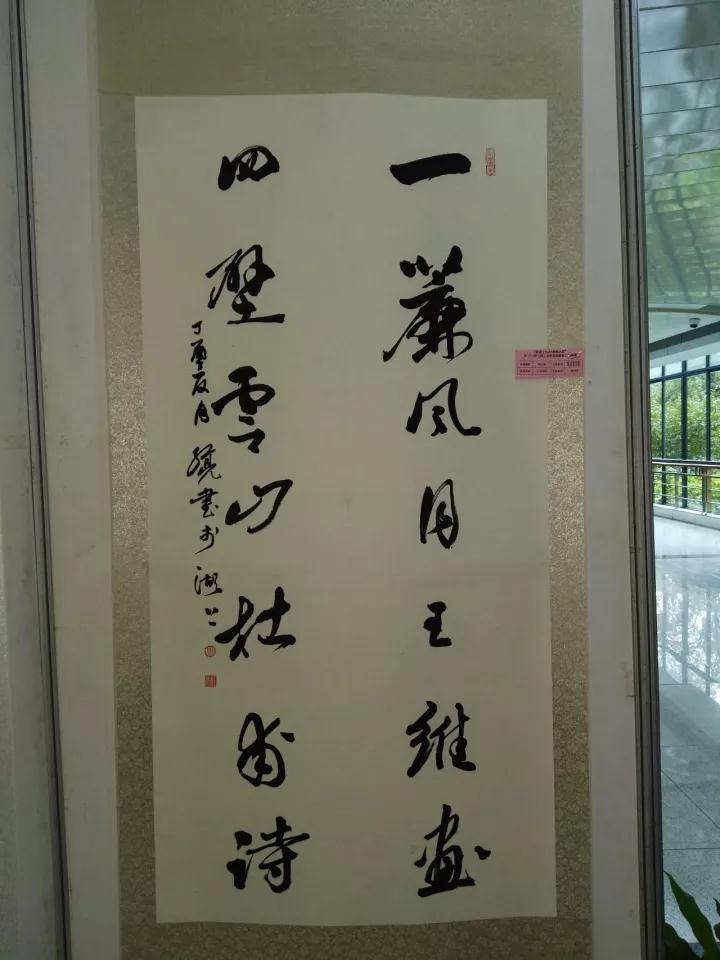 一簾風月王維画
四壁雲山杜甫詩
丁酉夏月
書於湖上